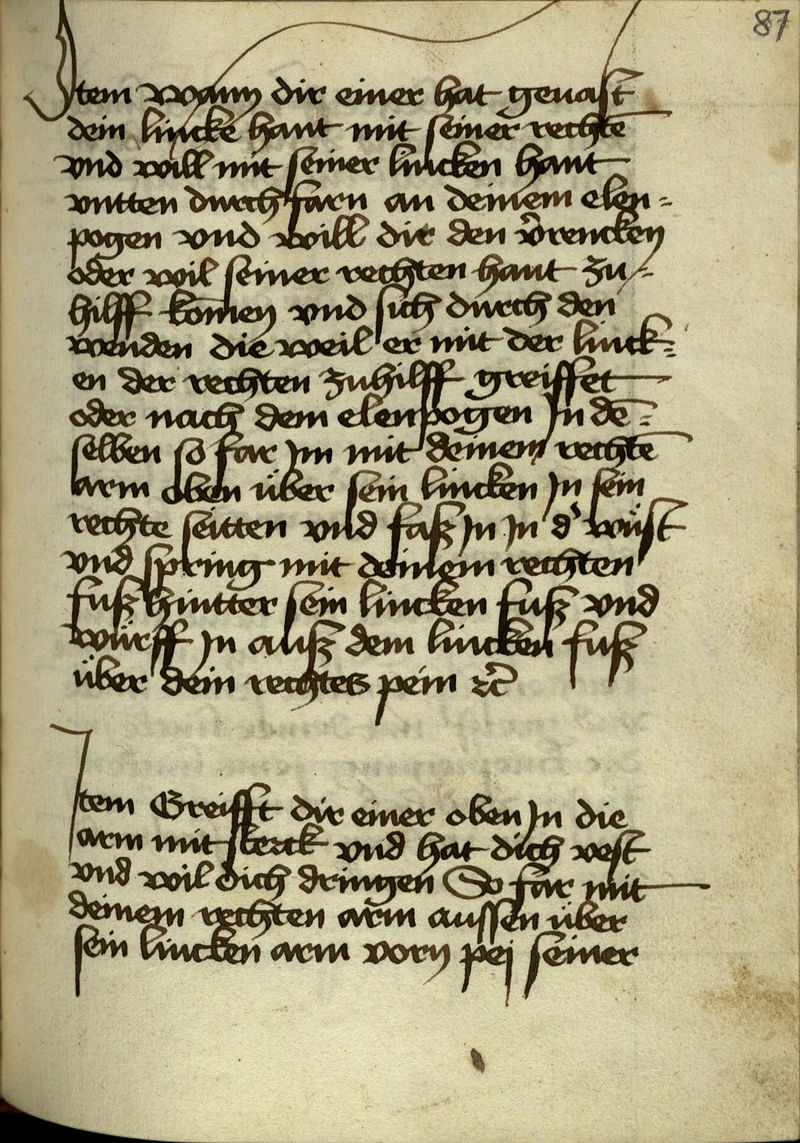 87
Item wann dir einer hat geuast
dein lincke hant mit seiner rechtē
vnd will mit seiner lincken hant
vntten durch farn an deinem elen=
pogen vnd will dir den v̄rencken
oder wil seiner rechten hant zu=
hilff kōmen vnd sich durch den
wenden die weil er mit der linck=
en der rechten zuhilff greiffet
oder nach dem elenpogen Jn dē=
selben so far Jm mit deinem rechtē
arm oben über sein lincken Jn sein
rechte seitten vnd faß Jn Jn d' wüst
vnd spring mit deinem rechten
fuß hintter sein lincken fuß vnd
würff Jn auß dem lincken fuß
über dein rechtes pein ⁊c̄
Item Greifft dir einer oben Jn die
arm mit sterck vnd hat dich vest
vnd wil dich dringen So far mit
deinem rechten arm aussen über
sein lincken arm vorn pej seiner